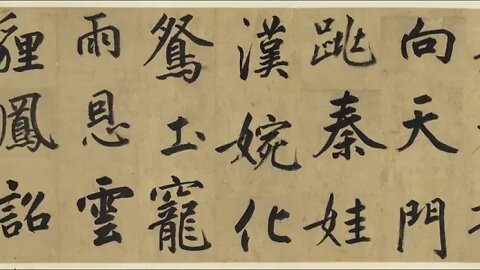 向天門
跐秦娃
漢婉化
鴛土寵
雨恩雲
貍鳳詔